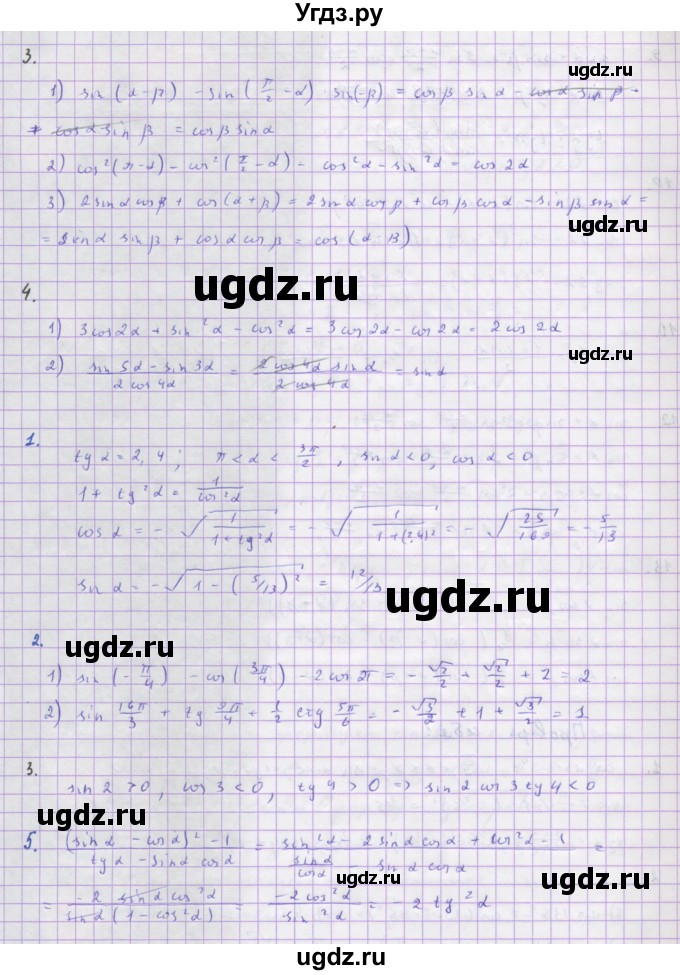 Угдз.ру
3.
1) sin (α-β) - sin (π/2 - α) sin(-β) = cosβ sinα - cosα sinβ +
+ cosα sinβ = cosβ sinα
ugdz.ru
2) cos²(π-α) - cos²(π/2 - α) - cos²α - sin²α = cos 2α
3) 2sinα cosβ + cos(α+β) = 2sinα cosβ + cosβ cosα - sinβ sinα =
ugdz.ru
= sinα sinβ + cosα cosβ = cos(α-β)
ugdz.ru
4.
1) 3cos2α + sin²α - cos²α = 3cos2α - cos2α = 2cos2α
ugdz.ru
2) (sin5α - sin3α)/(2cos4α) = (2cos4α sinα)/(2cos4α) = sinα
1.
tgα = 2,4; π < α < 3π/2, sinα < 0, cosα < 0
1 + tg²α = 1/cos²α
cosα = - √(1/(1+tg²α)) = - √(1/(1+(2,4)²)) = - √(25/169) = - 5/13
sinα = - √(1 - (5/13)²) = 12/13
ugdz.ru
2.
ugdz.ru
1) sin(-π/4) - cos(3π/4) - 2cos2π = - √2/2 + √2/2 + 2 = 2
2) sin 16π/3 + tg 9π/4 + 1/2 ctg 5π/6 = - √3/2 + 1 + √3/2 = 1
ugdz.ru
3.
sin2 > 0, cos3 < 0, tg4 > 0 => sin2 cos3 tg4 < 0
ugdz.ru
5. ((sinα - cosα)² - 1)/(tgα - sinα cosα) = (sin²α - 2sinα cosα + cos²α - 1)/(sinα/cosα - sinα cosα) =
= (-2 sinα cos²α)/(sinα(1 - cos²α)) = (-2cos²α)/(sin²α) = -2tg²α
ugdz.ru